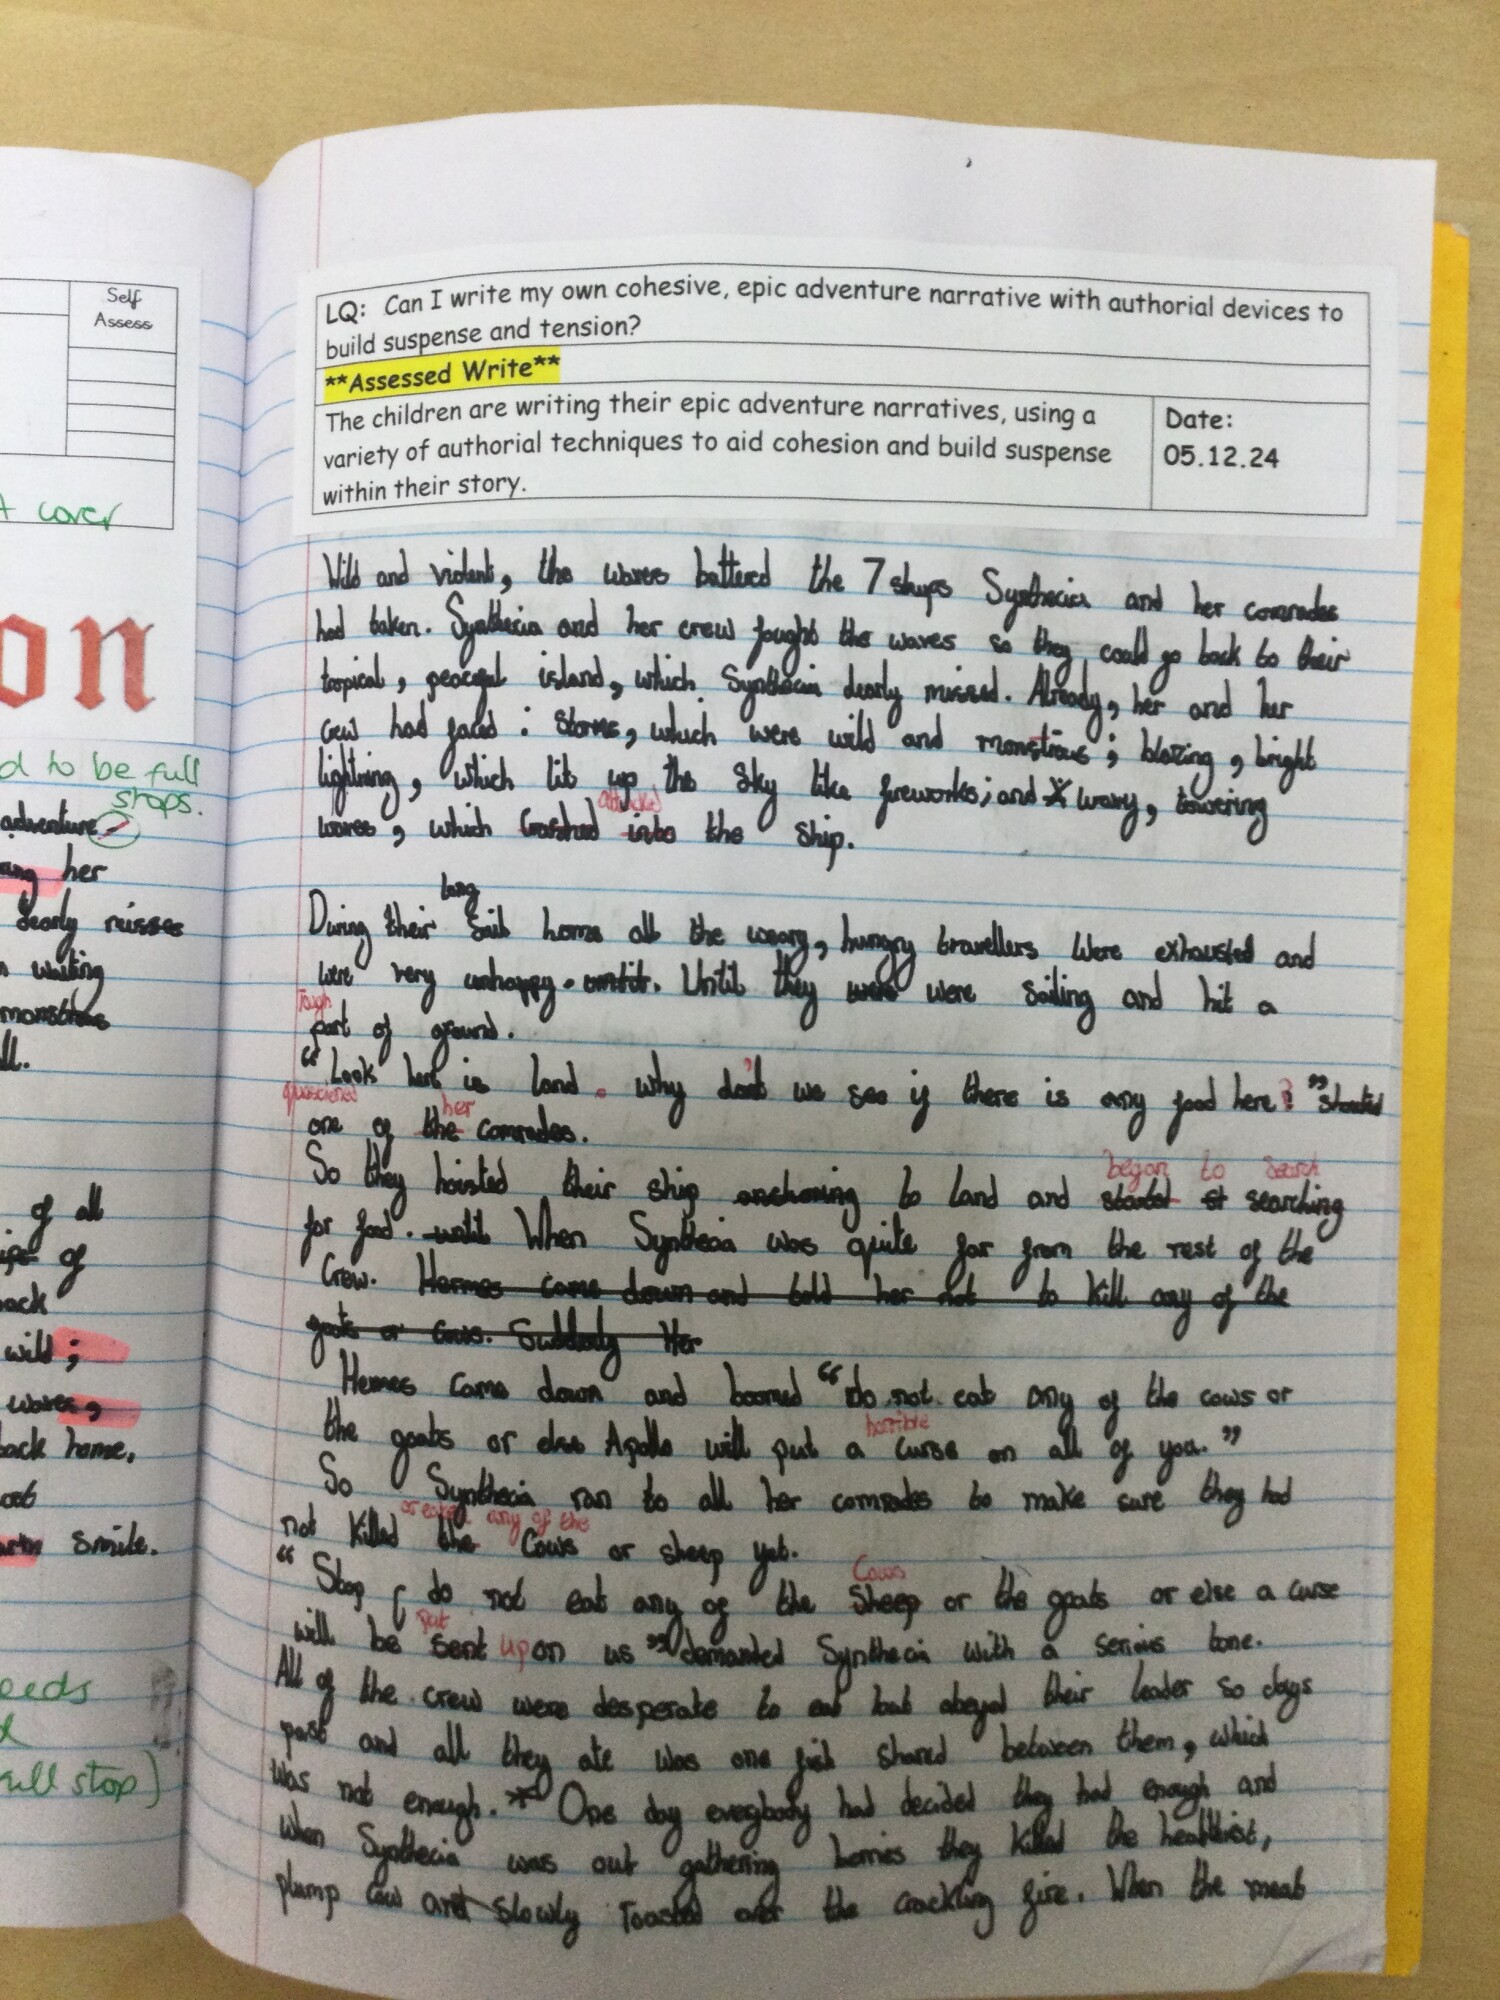 Self
Assess
t cover
on
d to be full
stops.
adventure
her
dearly misses
waiting
monstrous
ll.
of all
of
back
wild;
waves,
back home,
smile.
eeds
full stop)
LQ: Can I write my own cohesive, epic adventure narrative with authorial devices to
build suspense and tension?
**Assessed Write**
The children are writing their epic adventure narratives, using a
variety of authorial techniques to aid cohesion and build suspense
within their story.
Date:
05.12.24
Wild and violent, the waves battered the 7 ships Synthecia and her comrades
had taken. Synthecia and her crew fought the waves so they could go back to their
tropical, peacefull island, which Synthecia dearly missed. Already, her and her
crew had faced: storms, which were wild and monstrous; blazing, bright
lightning, which lit up the sky like fireworks; and wavy, towering
attacked
waves, which crashed into the ship.
long
During their sail home all the weary, hungry travellers were exhausted and
were very unhappy. until. Until they were were sailing and hit a
Tough
part of ground.
"Look here is land. why don't we see if there is any food here?" shouted
quescioned her
one of the comrades.
began to search
So they hoisted their ship anchoring to land and started st searching
for food. until When Synthecia was quite far from the rest of the
Crew. Hermes came down and told her not to kill any of the
goats or cows. Suddenly Her
Hermes came down and boomed "do not eat any of the cows or
horrible
the goats or else Apollo will put a curse on all of you."
So Synthecia ran to all her comrades to make sure they had
or eaten any of the
not killed the cows or sheep yet.
Cows
"Stop, do not eat any of the sheep or the goats or else a curse
put
will be sent upon us" demanded Synthecia with a serious tone.
All of the crew were desperate to eat but obeyed their leader so days
past and all they ate was one fish shared between them, which
was not enough.* One day everybody had decided they had enough and
when Synthecia was out gathering berries they killed the healthist,
plump cow and slowly roasted over the crackling fire. When the meat